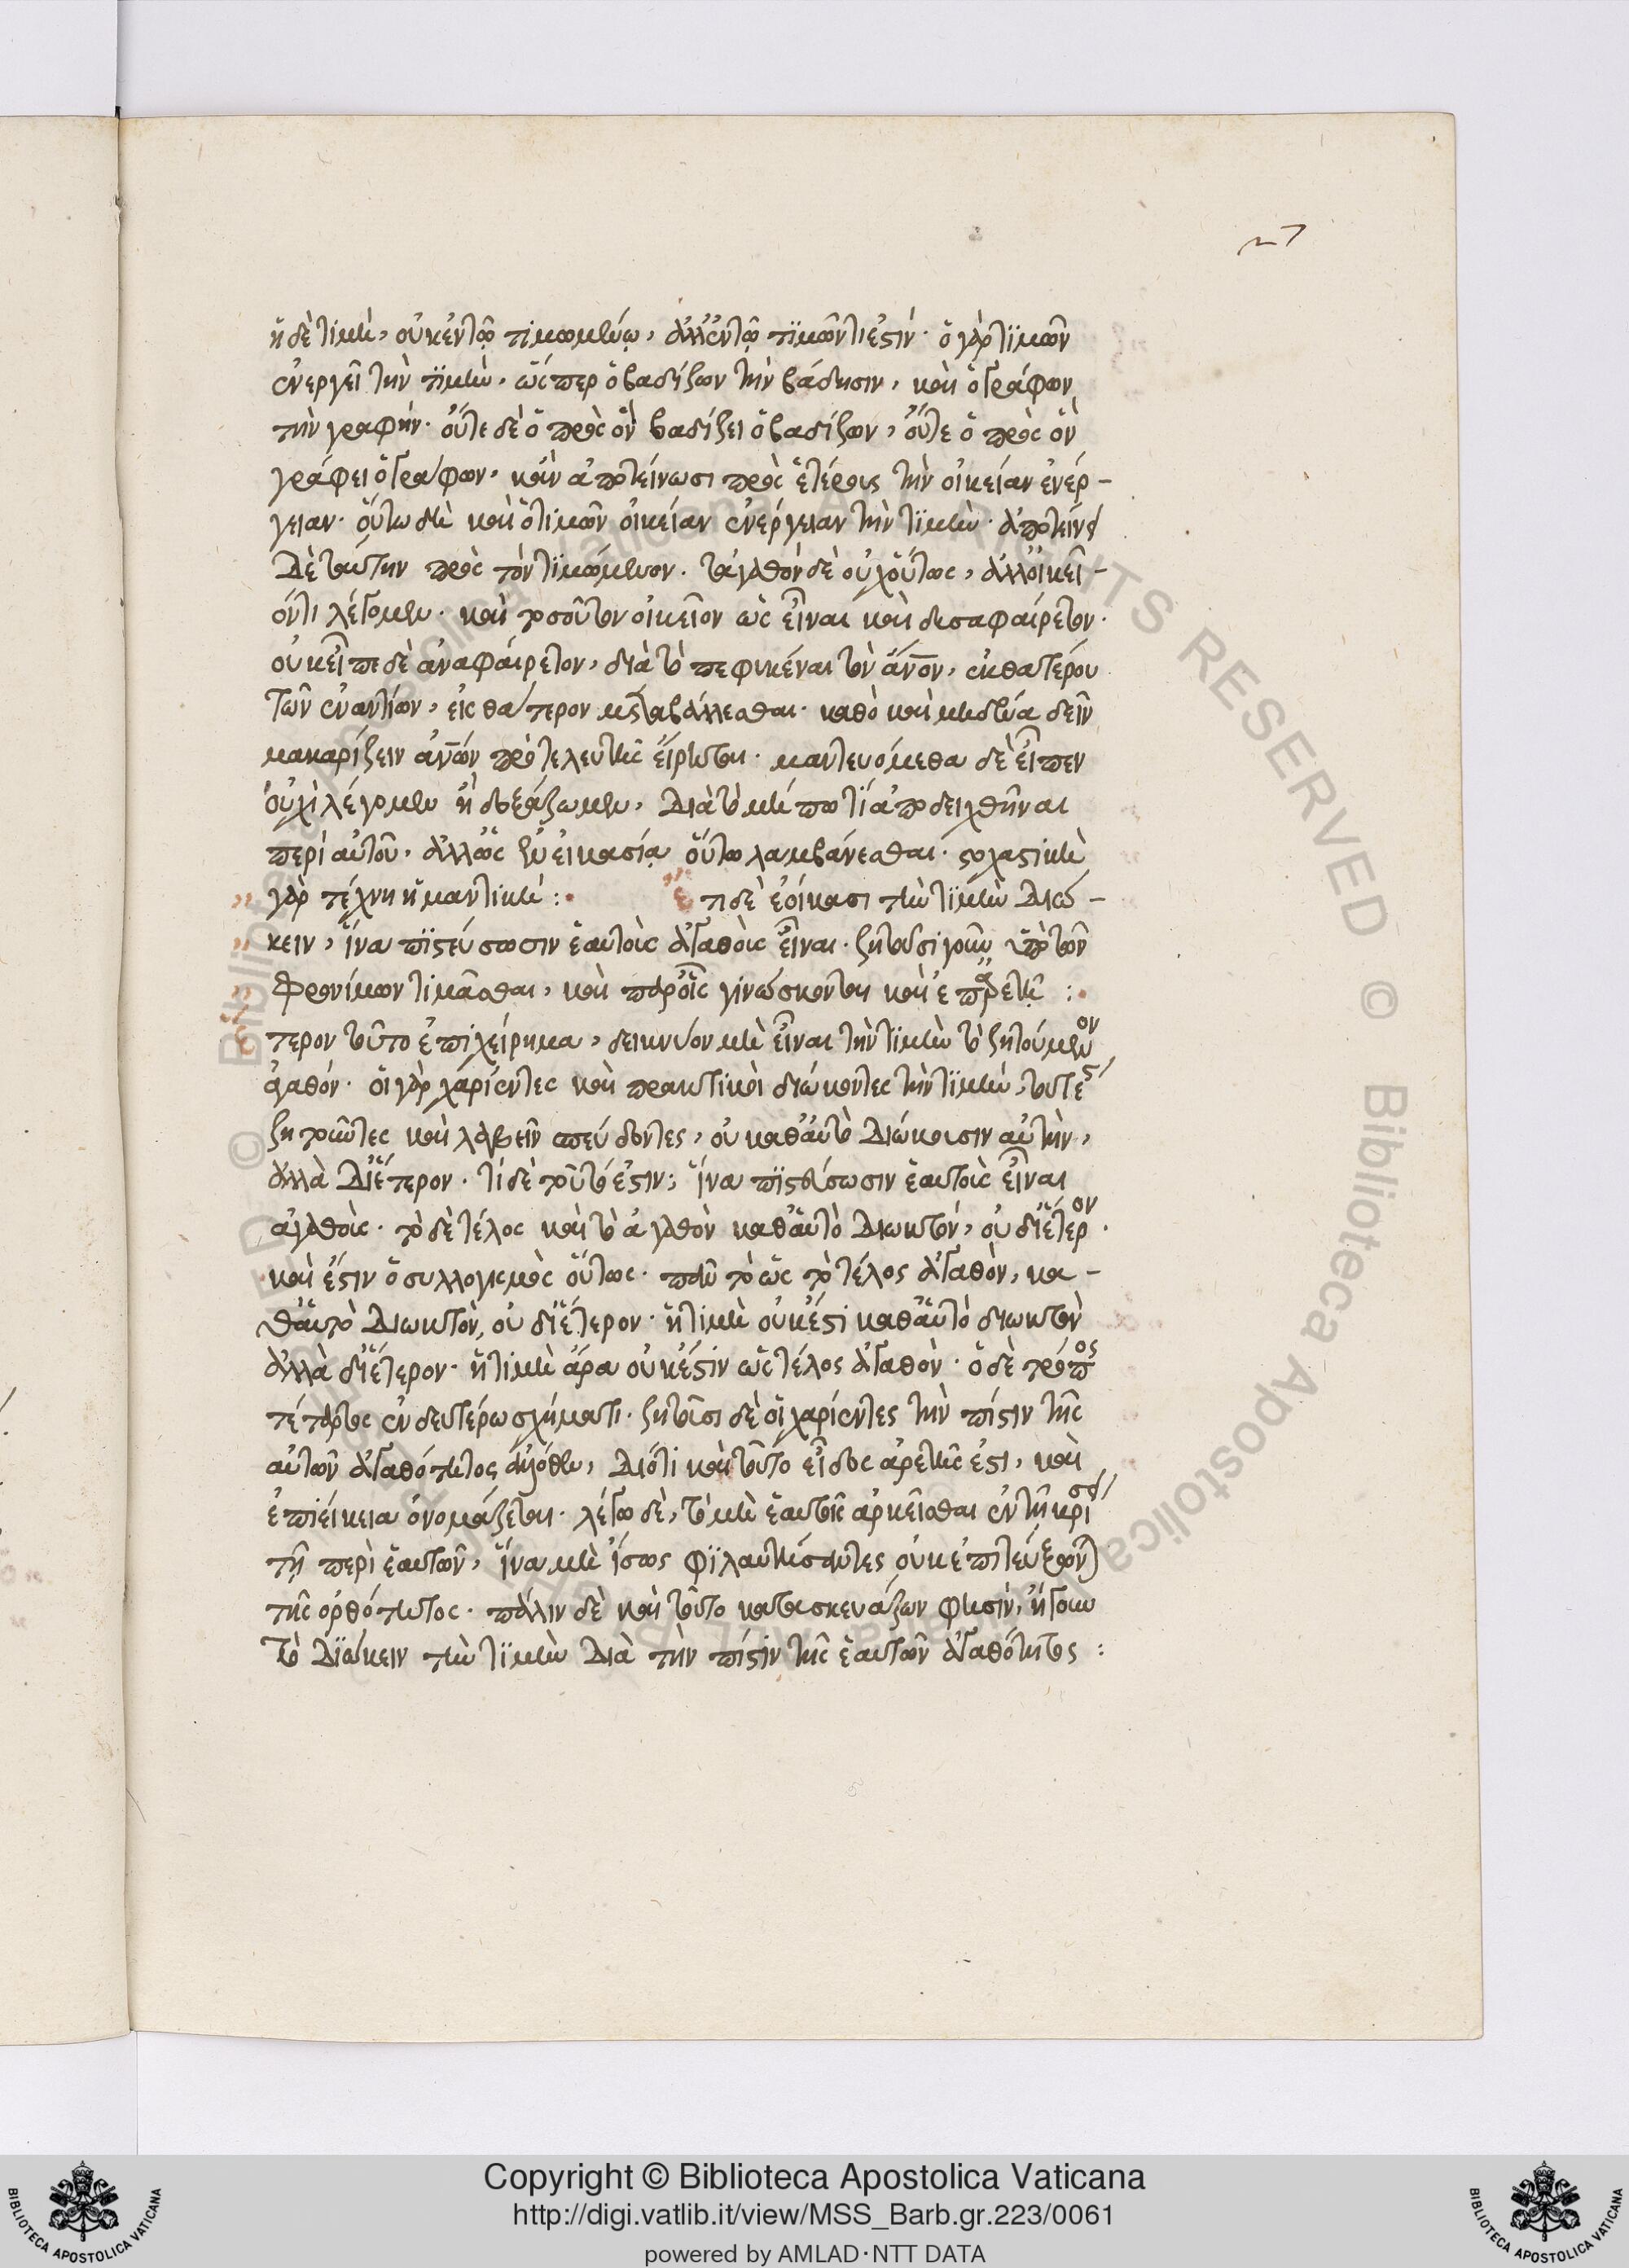 ἡ δὲ τιμὴ, οὐκ ἐν τῷ τιμωμένῳ, ἀλλ' ἐν τῷ τιμῶντι ἐστίν· ὁ γὰρ τιμῶν
ἐνεργεῖ τὴν τιμὴν, ὥσπερ ὁ βαδίζων τὴν βάδησιν, καὶ ὁ γράφων
τὴν γραφήν· οὔτε δὲ ὁ πρὸς ὃν βαδίζει ὁ βαδίζων, οὔτε ὁ πρὸς ὃν
γράφει ὁ γράφων, κἂν ἀποτείνωσι πρὸς ἑτέρους τὴν οἰκείαν ἐνέρ-
γειαν· οὕτω δὴ καὶ ὁ τιμῶν οἰκείαν ἐνέργειαν τὴν τιμὴν· ἀποτείνει
δὲ ταύτην πρὸς τὸν τιμώμενον. τἀγαθὸν δὲ οὐχ οὕτως, ἀλλ' οἰκεῖ-
όν τι λέγομεν· καὶ τοσοῦτον οἰκεῖον ὡς εἶναι καὶ δυσαφαίρετον·
οὐκ εἶπε δὲ ἀναφαίρετον, διὰ τὸ πεφυκέναι τὸν ἄνον, ἐκ θατέρου
τῶν ἐναντίων, εἰς θάτερον μεταβάλλεσθαι· καθὸ καὶ μηδένα δεῖν
μακαρίζειν ἀνων πρὸ τελευτῆς εἴρηται· μαντευόμεθα δὲ εἶπεν
οὐχὶ λέγομεν ἢ δοξάζωμεν, διὰ τὸ μή πω τί ἀποδειχθῆναι
περὶ αὐτοῦ, ἀλλ' ὡς ἐν εἰκασίᾳ οὕτω λαμβάνεσθαι· στοχαστικὴ
γὰρ τέχνη ἡ μαντική: ἔτι δὲ ἐοίκασι τὴν τιμὴν διώ-
κειν, ἵνα πιστεύσωσιν ἑαυτοὺς ἀγαθοὺς εἶναι· ζητοῦσι γοῦν ὑπὸ τῶν
φρονίμων τιμᾶσθαι, καὶ παρ' οἷς γινώσκονται καὶ ἐπ' ἀρετῇ:
ἕτερον τοῦτο ἐπιχείρημα, δεικνύον μὴ εἶναι τὴν τιμὴν τὸ ζητούμενον
ἀγαθόν· οἱ γὰρ χαρίεντες καὶ πρακτικοὶ διώκοντες τὴν τιμὴν, τουτέστι
ζητοῦντες καὶ λαβεῖν σπεύδοντες, οὐ καθ' αὑτὸ διώκουσιν αὐτὴν,
ἀλλὰ δι' ἕτερον· τί δὲ τοῦτό ἐστιν; ἵνα πιστεύσωσιν ἑαυτοὺς εἶναι
ἀγαθοὺς· τὸ δὲ τέλος καὶ τὸ ἀγαθὸν καθ' αὑτὸ διωκτόν, οὐ δι' ἕτερον·
καὶ ἔστιν ὁ συλλογισμὸς οὕτως· πᾶν τὸ ὡς τὸ τέλος ἀγαθὸν, κα-
θ' αὑτὸ διωκτὸν, οὐ δι' ἕτερον· ἡ τιμὴ οὐκ ἔστι καθ' αὑτὸ διωκτὸν
ἀλλὰ δι' ἕτερον· ἡ τιμὴ ἄρα οὐκ ἔστιν ὡς τέλος ἀγαθὸν· ὁ δὲ τρόπος
τέταρτος ἐν δευτέρω σχήματι· ζητοῦσι δὲ οἱ χαρίεντες τὴν πίστιν τῆς
αὐτῶν ἀγαθότητος ἄλλοθεν, διότι καὶ τοῦτο εἶδος ἀρετῆς ἐστι, καὶ
ἐπιείκεια ὀνομάζεται· λέγω δὲ, τὸ μὴ ἑαυτοῖς ἀρκεῖσθαι ἐν τῇ κρίσει
τῇ περὶ ἑαυτῶν, ἵνα μὴ ἴσως φιλαυτήσαντες οὐκ ἐπιτεύξονται
τῆς ὀρθότητος. πάλιν δὲ καὶ τοῦτο κατασκευάζων φησίν, ἤγουν
τὸ διώκειν τὴν τιμὴν διὰ τὴν πίστιν τῆς ἑαυτῶν ἀγαθότητος:
Copyright © Biblioteca Apostolica Vaticana
http://digi.vatlib.it/view/MSS_Barb.gr.223/0061
powered by AMLAD·NTT DATA
BIBLIOTECA APOSTOLICA VATICANA
BIBLIOTECA APOSTOLICA VATICANA